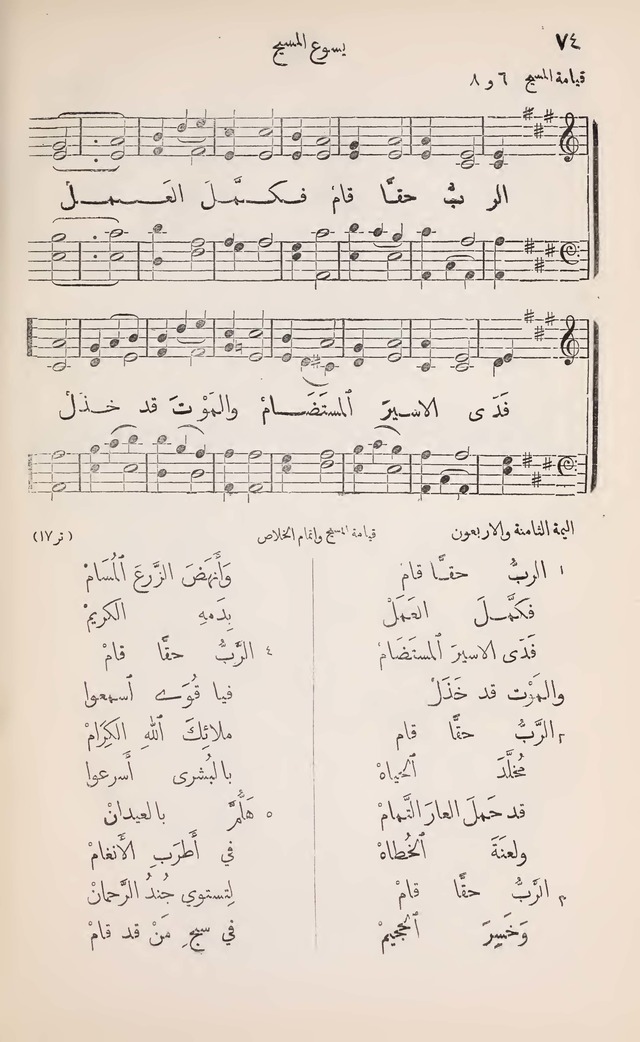 ٧٤
يسوع المسيح
قيامة المسيح ٦ و ٨
الربُّ حقًّا قامْ فـكـمَّـلَ العَـمـلْ
فَدَى الاسيرَ المستَضَـامْ والمَوْتَ قد خذلْ
اليمة الثامنة والاربعون
قيامة المسيح واتمام الخلاص
(تر ١٧)
١ الربُّ حقًّا قامْ
فكمَّلَ العَمَلْ
فَدَى الاسيرَ المستَضَامْ
والمَوْت قد خَذَلْ
٢ الرَّبُّ حقًّا قام
مُخلَّدَ الحياهْ
قد حَملَ العارَ التَّمامْ
ولعنَةَ الخُطاهْ
٣ الرَّبُّ حقًّا قامْ
وَخَسِرَ الجحيمْ
وَأَنهَضَ الزَّرعَ المُسَامْ
بِدَمهِ الكريمْ
٤ الرَّبُّ حقًّا قامْ
فيا قُوَے اسمعوا
ملائِكَ اللهِ الكِرَامْ
بالبُشرى أَسرعوا
٥ هَلُمَّ بالعيدانْ
في أَطرَبِ الأَنغامْ
لِتستوي جُندُ الرَّحمانْ
في سبحِ مَنْ قد قامْ